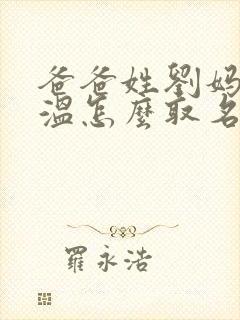 爸爸姓劉媽
溫怎麼取名
羅永浩